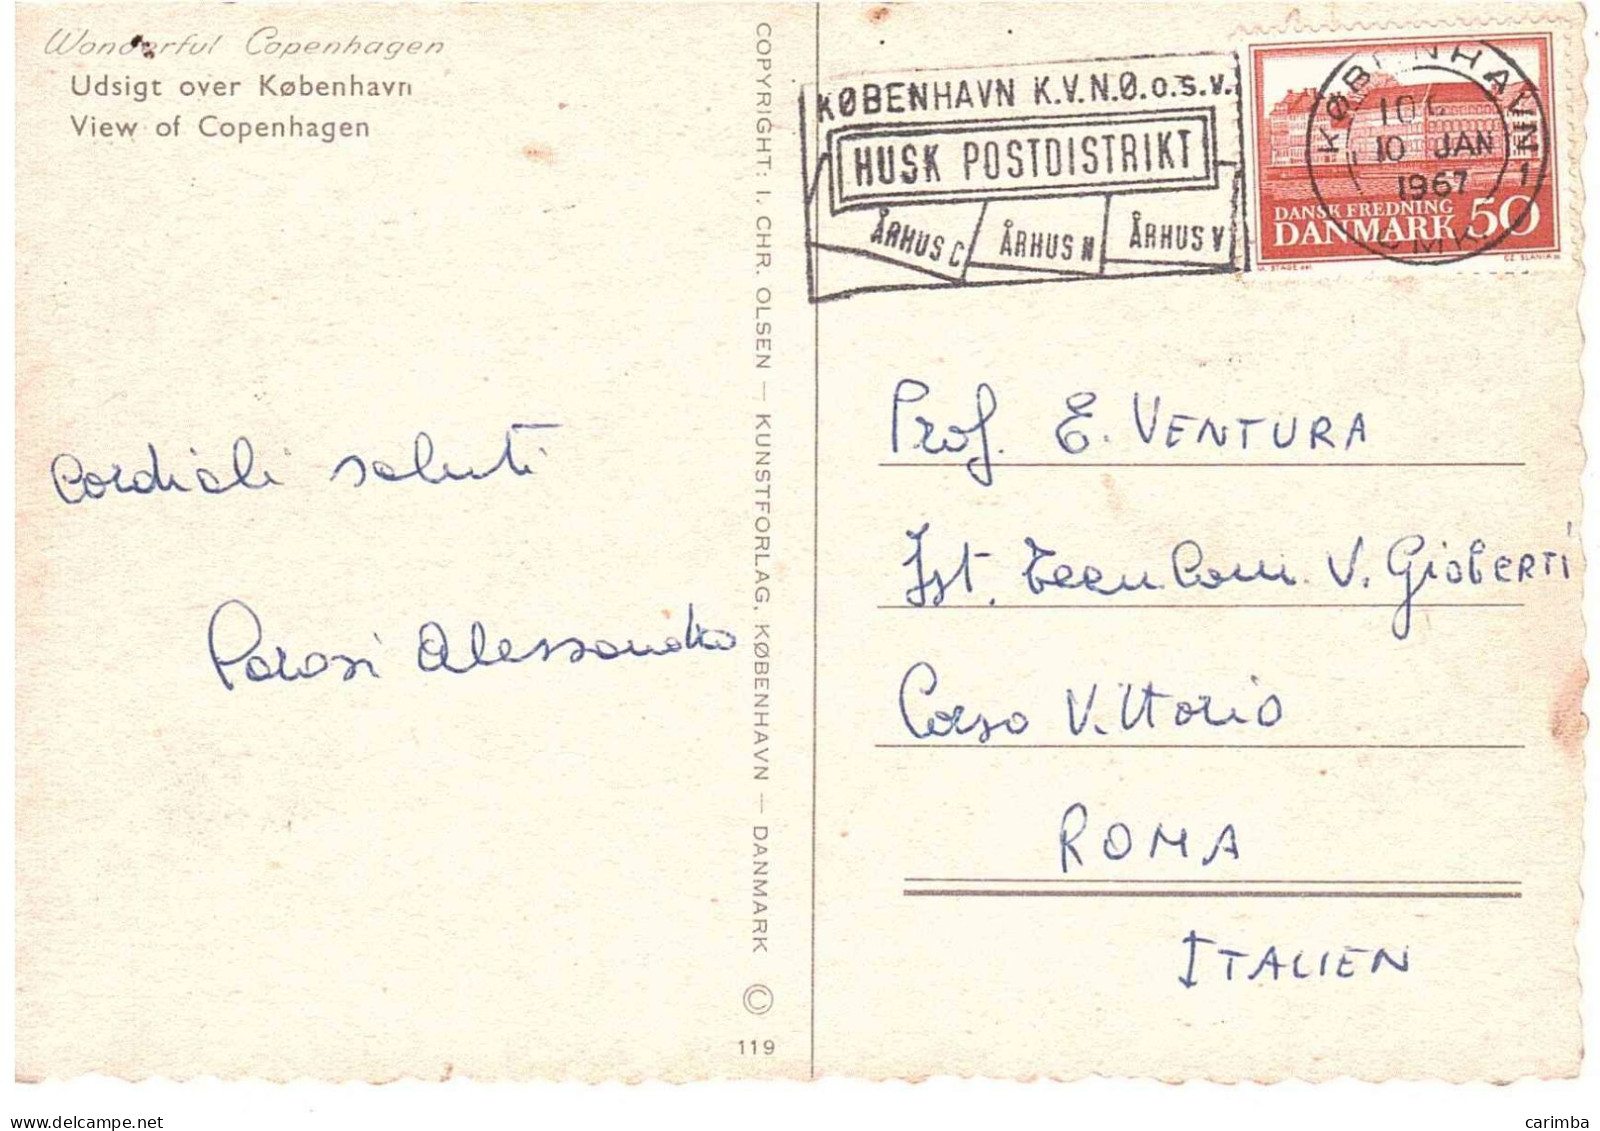 Wonderful Copenhagen
Udsigt over København
View of Copenhagen
COPYRIGHT: I. CHR. OLSEN — KUNSTFORLAG, KØBENHAVN — DANMARK ©
119
KØBENHAVN K.V.N.Ø.o.s.v.
HUSK POSTDISTRIKT
ÅRHUS C
ÅRHUS N
ÅRHUS V
KØBENHAVN
10 JAN
1967
OMK
1
DANSK FREDNING
DANMARK 50
cordiali saluti
Parosi Alessandro
Prof. E. VENTURA
Ist. Tecn Com. V. GIOBERTI
Corso Vittorio
ROMA
ITALIEN
carimba